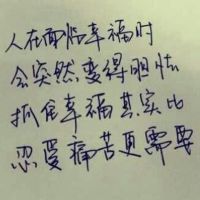 人在面临幸福时
会突然变得胆怯
抓住幸福其实比
忍受痛苦更需要